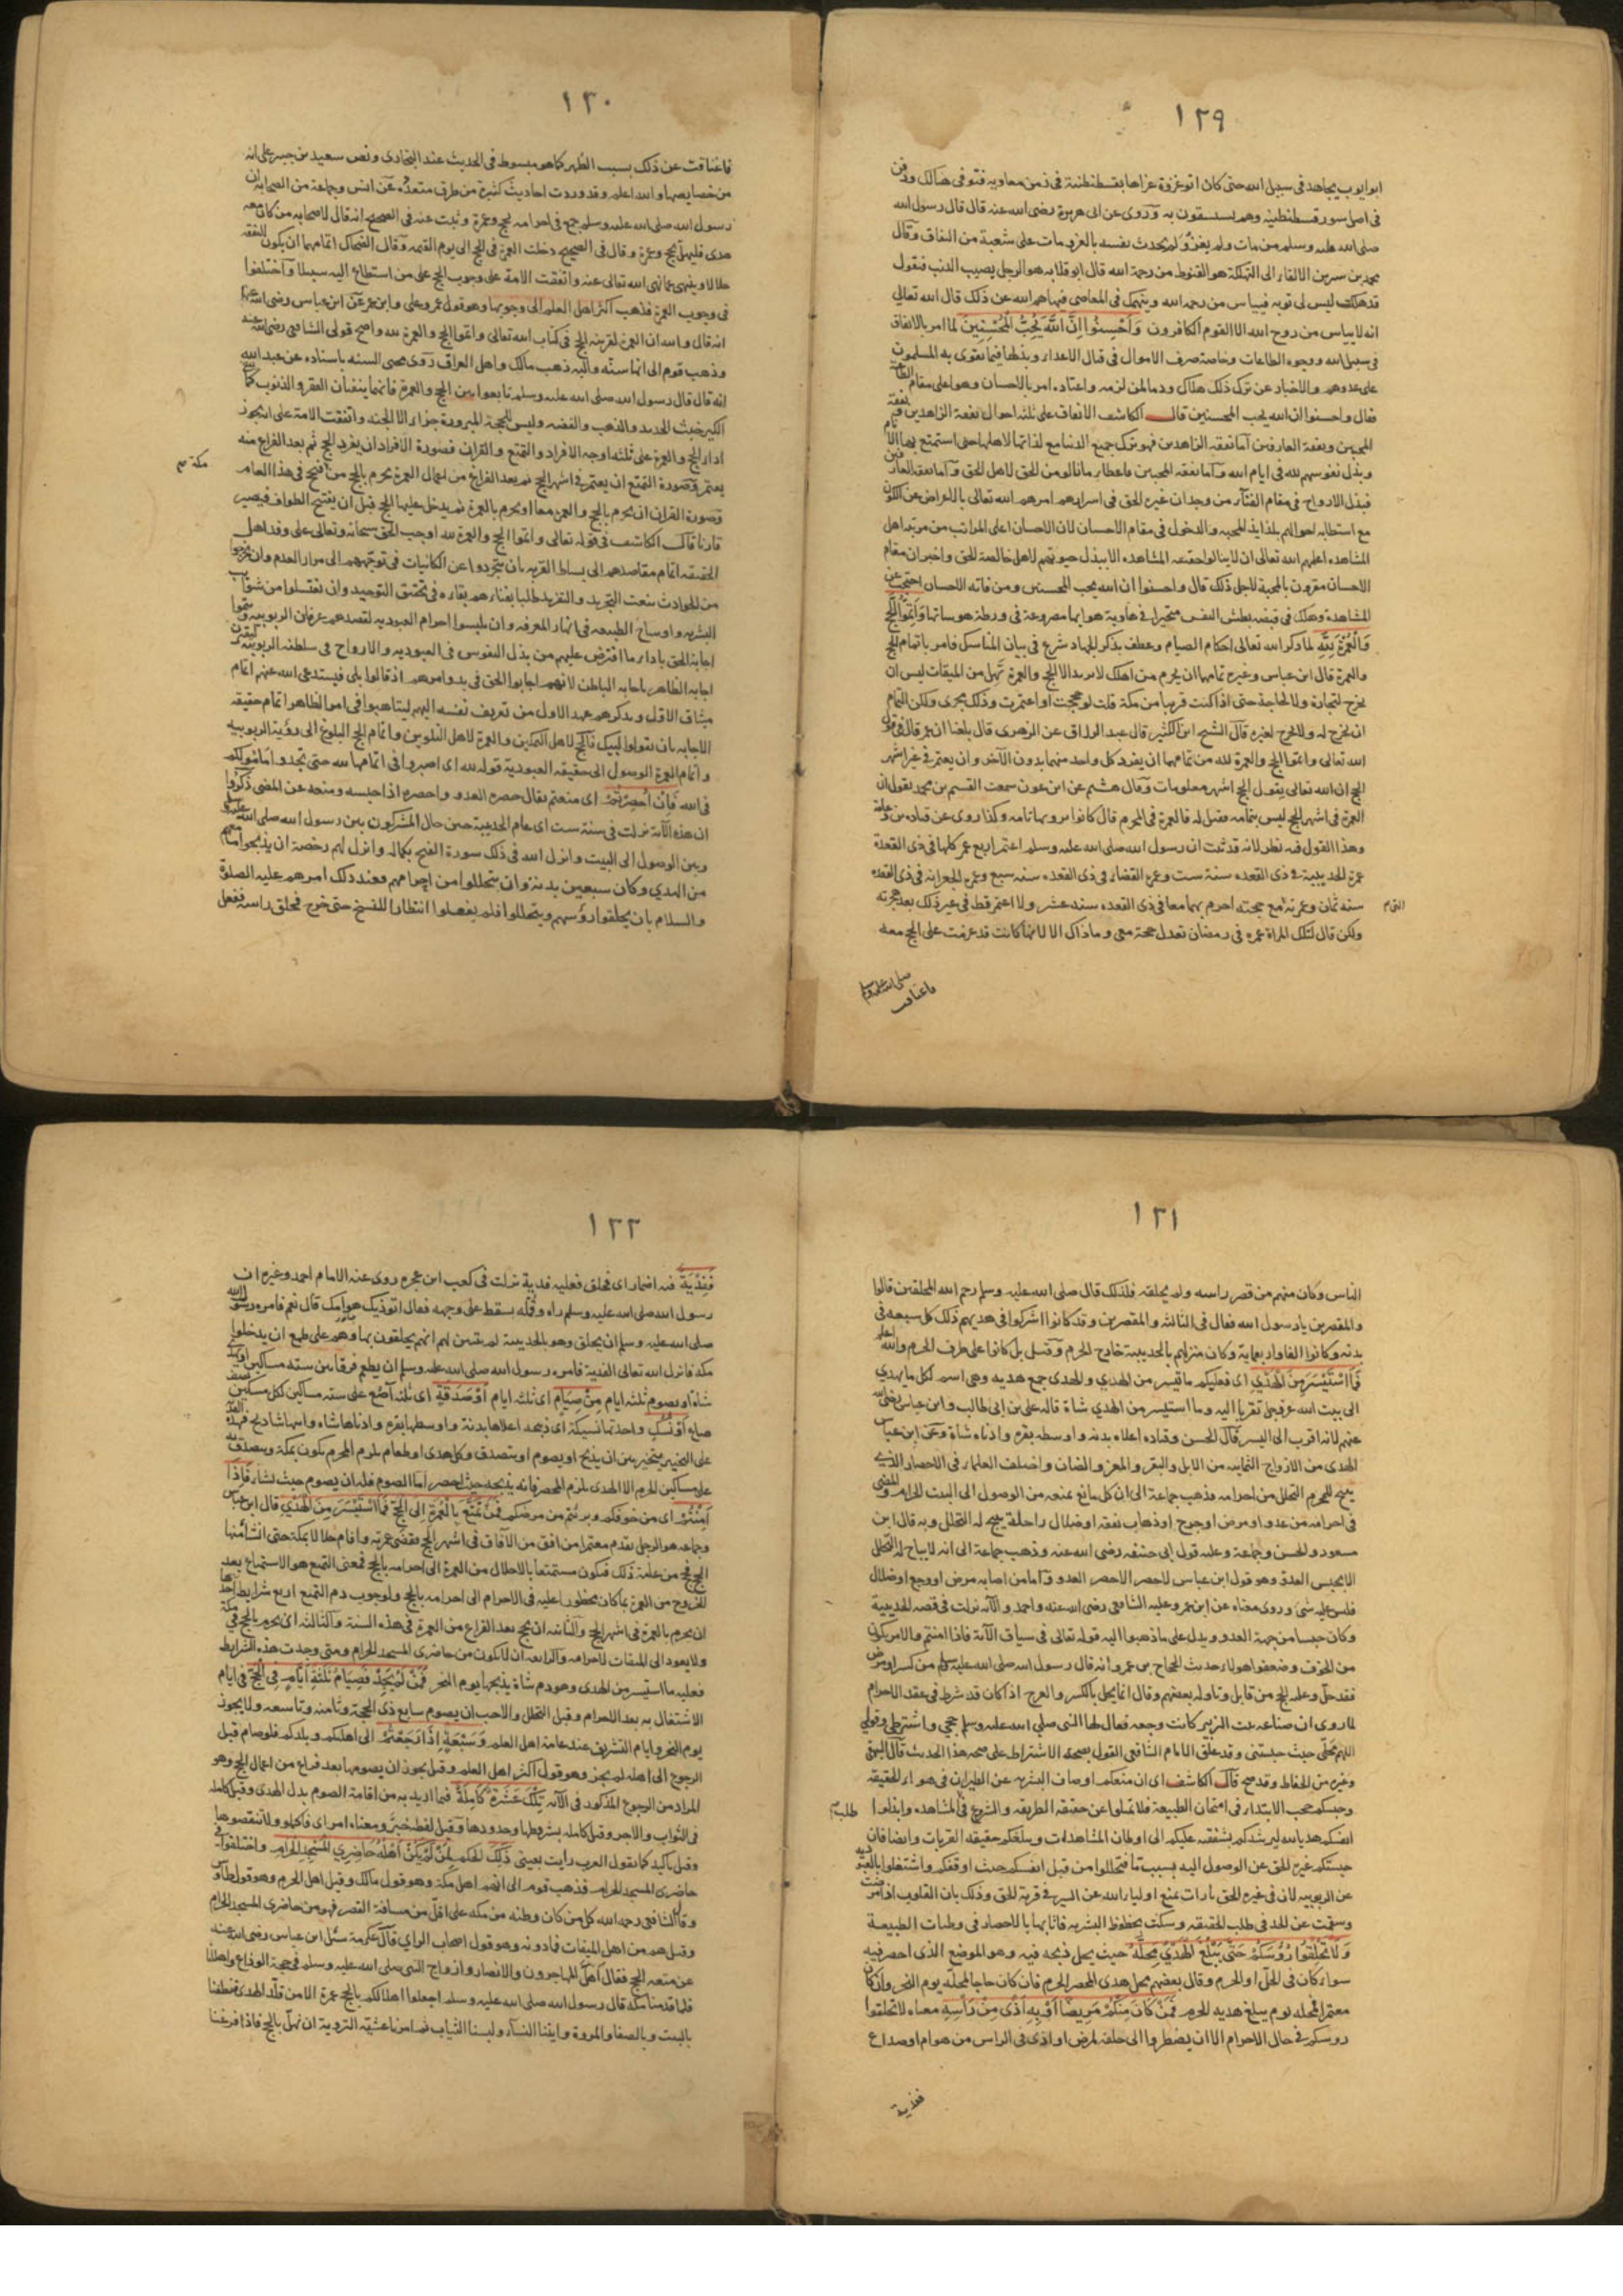 ١٢٩
ابو ايوب يجاهد فى سبيل الله حتى كان اخر غزوة غزاها بقسطنطنية فى زمن معاويه فتوفى هنالك ودفن
فى اصل سور قسطنطينه وهم يستسقون به وروى عن ابى هريرة رضى الله عنه قال قال رسول الله
صلى الله عليه وسلم من مات ولم يغز ولم يحدث نفسه بالغزو مات على شعبة من النفاق وقال
محمد بن سيرين الالقاء الى التهلكة هو القنوط من رحمة الله قال ابو قلابه هو الرجل يصيب الذنب فيقول
قد هلكت ليس لى توبه فييأس من رحمة الله وينهمك فى المعاصى فنهاهم الله عن ذلك قال الله تعالى
انه لا ييأس من روح الله الا القوم الكافرون وَأَحْسِنُوا إِنَّ اللَّهَ يُحِبُّ الْمُحْسِنِينَ لما امر بالانفاق
فى سبيل الله ووجوه الطاعات وخاصة صرف الاموال فى قتال الاعداء وبذلها فيما تقوى به المسلمون
على عدوهم والاخبار عن ترك ذلك هلاك ودمار لمن لزمه واعتاده امر بالاحسان وهو اعلى مقام الطاعة
فقال واحسنوا ان الله يحب المحسنين قال الكاشف الانفاق على ثلثه احوال نفقة الزاهدين ونفقة
المحبين ونفقة العارفين اما نفقه الزاهدين فهو ترك جميع الدنيا مع لذاتها لاهلها حتى استمتع بها الانام
وبذل نفوسهم لله فى ايام الله واما نفقه المحبين فاعطاء ما نالو من الحق لاهل الحق واما نفقه العارفين
فبذل الارواح فى مقام الفناء من وجدان غيره الحق فى اسرارهم امرهم الله تعالى بالاعراض عن الكون
مع استطابه احوالهم بلذايذ المحبه والدخول فى مقام الاحسان لان الاحسان اعلى المراتب من مرتبه اهل
المشاهده اعلمهم الله تعالى ان لاينالوا حقيقه المشاهده الا ببذل حيوتهم لاهل خالصة للحق واخبر ان مقام
الاحسان مقرون بالمحبة لاجل ذلك قال واحسنوا ان الله يحب المحسنين ومن فاته الاحسان احتجب عن
المشاهدة وهلك فى قبضه بطش النفس متحيرا فى هاوية هواها مصروعة فى ورطة هوساتها وَأَتِمُّوا الْحَجَّ
وَالْعُمْرَةَ لِلَّهِ لما ذكر الله تعالى احكام الصيام وعطف بذكر الجهاد شرع فى بيان المناسك فامر باتمام الحج
والعمرة قال ابن عباس وغيره تمامها ان يحرم من اهلك لا تريد الا الحج والعمرة تهل من الميقات ليس ان
يخرج لتجارة ولا لحاجة حتى اذا كنت قريبا من مكة قلت لو حججت او اعتمرت وذلك يجزى ولكن التمام
ان تخرج له ولا تخرج لغيره قال الشيخ ابن الكثير قال عبد الرزاق عن الزهرى قال بلغنا ان عمر قال فى قول
الله تعالى واتموا الحج والعمرة لله من تمامهما ان يفرد كل واحد منهما بدون الآخر وان يعتمر فى غير اشهر
الحج ان الله تعالى يقول الحج اشهر معلومات وقال هشيم عن ابن عون سمعت القسم بن محمد يقول ان
العمرة فى اشهر الحج ليس بتمامه فقيل له فالعمرة فى المحرم قال كانوا يرونها تامه وكذا روى عن قتاده بن دعامه
وهذا القول فيه نظر لانه قد ثبت ان رسول الله صلى الله عليه وسلم اعتمر اربع عمر كلها فى ذى القعدة
عمرة الحديبية فى ذى القعده سنة ست وعمرة القضاء فى ذى القعده سنه سبع وعمرة الجعرانه فى ذى القعده
سنه ثمان وعمرته مع حجته احرم بهما معا فى ذى القعده سنه عشر ولا اعتمر قط فى غير ذلك بعد هجرته
ولكن قال لتلك المراة عمره فى رمضان تعدل حجة معى وما ذاك الا لانها كانت قد عزمت على الحج معه
صلى الله عليه وسلم
فاعتاقت
١٣٠
فاعتاقت عن ذلك بسبب الظهر كما هو مبسوط فى الحديث عند البخارى ونص سعيد بن جبير على انه
من خصايصها والله اعلم وقد وردت احاديث كثيرة من طرق متعدده عن انس وجماعة من الصحابه ان
رسول الله صلى الله عليه وسلم جمع فى احرامه بحج وعمرة وثبت عنه فى الصحيح انه قال لاصحابه من كان معه
هدى فليهل بحج وعمرة وقال فى الصحيح دخلت العمرة فى الحج الى يوم القيمه وقال الضحاك اتمامهما ان يكون النفقة
حلالا وينتهى عما نهى الله تعالى عنه واتفقت الامة على وجوب الحج على من استطاع اليه سبيلا واختلفوا
فى وجوب العمرة فذهب اكثر اهل العلم الى وجوبها وهو قول عمر وعلى وابن عمر عن ابن عباس رضى الله عنهما
انه قال والله ان العمرة لقرينة الحج فى كتاب الله تعالى واتموا الحج والعمرة لله واصح قولى الشافعى رضى الله عنه
وذهب قوم الى انها سنه واليه ذهب مالك واهل العراق روى محيى السنه باسناده عن عبد الله
انه قال قال رسول الله صلى الله عليه وسلم تابعوا بين الحج والعمرة فانهما ينفيان الفقر والذنوب كما ينفى
الكير خبث الحديد والذهب والفضه وليس للحجة المبرورة جزاء الا الجنه واتفقت الامة على انه يجوز
اداء الحج والعمرة على ثلثه اوجه الافراد والتمتع والقران فصورة الافراد ان يفرد الحج ثم بعد الفراغ منه
يعتمر وصورة التمتع ان يعتمر فى اشهر الحج ثم بعد الفراغ من اعمال العمرة يحرم بالحج من مكة فيحج فى هذا العام
وصورة القران ان يحرم بالحج والعمرة معا او يحرم بالعمرة ثم يدخل عليها الحج قبل ان يفتتح الطواف فيصير
قارنا قال الكاشف فى قوله تعالى واتموا الحج والعمرة لله اوجب الحق سبحانه وتعالى على وفد اهل
الحقيقه اتمام مقاصدهم الى بساط القربه بان يتجردوا عن الكائنات فى توجههم الى مزار القدم وان يخرجوا
من الحوادث بنعت التجريد والتفريد طلبا بفنائهم بقاءه فى تحقيق التوحيد وان يغتسلوا من شوائب
البشريه واوساخ الطبيعه فى انهار المعرفه وان يلبسوا احرام العبوديه لقصدهم عرفان الربوبيه
اجابة الحق باداء ما افترض عليهم من بذل النفوس فى العبوديه والارواح فى سلطنه الربوبيه
اجابه الظاهر باجابه الباطن لانهم اجابوا الحق فى بدو امرهم اذ قالوا بلى فيستدعى الله عنهم اتمام
ميثاق الاول ويذكرهم عهد الاول من تعريف نفسه اليهم ليتأهبوا فى امر الظاهر اتمام حقيقه
الاجابه بان يقولوا لبيك فالحج لاهل التمكين والعمرة لاهل التلوين واتمام الحج البلوغ الى رؤية الربوبيه
واتمام العمرة الوصول الى حقيقه العبودية قوله لله اى اصبروا فى اتمامها لله حتى تجدوا
فى الله فَإِنْ أُحْصِرْتُمْ اى منعتم يقال حصره العدو واحصره اذا حبسه ومنعه عن المضى ذكروا
ان هذه الآية نزلت فى سنة ست اى عام الحديبية حين حال المشركون بين رسول الله صلى الله عليه وسلم
وبين الوصول الى البيت وانزل الله فى ذلك سورة الفتح بكماله وانزل لهم رخصة ان يذبحوا ما معهم
من الهدى وكان سبعين بدنة وان يتحللوا من احرامهم فعند ذلك امرهم عليه الصلوة
والسلام بان يحلقوا رؤسهم ويتحللوا فلم يفعلوا انتظارا للفسخ حتى خرج فحلق راسه ففعل
١٣١
الناس وكان منهم من قصر راسه ولم يحلقه فلذلك قال صلى الله عليه وسلم رحم الله المحلقين قالوا
والمقصرين يا رسول الله فقال فى الثالثه والمقصرين وقد كانوا اشركوا فى هديهم ذلك كل سبعه فى
بدنه وكانوا الفا واربعمايه وكان منزلهم بالحديبية خارج الحرم وقيل بل كانوا على طرف الحرم والله اعلم
فَمَا اسْتَيْسَرَ مِنَ الْهَدْيِ اى فعليكم ما تيسر من الهدي والهدى جمع هديه وهى اسم لكل ما يهدى
الى بيت الله عز وجل تقربا اليه وما استيسر من الهدي شاة قاله على بن ابى طالب وابن عباس رضى الله
عنهم لانه اقرب الى اليسر قال الحسن وقتاده اعلاه بدنه واوسطه بقره وادناه شاة وعن ابن عباس
الهدى من الازواج الثمانيه من الابل والبقر والمعز والضان واختلف العلماء فى الاحصار الذى
يبيح للمحرم التحلل من احرامه فذهب جماعة الى ان كل مانع يمنعه من الوصول الى البيت الحرام والمضى
فى احرامه من عدو او مرض او جرح او ذهاب نفقه او ضلال راحلة يبيح له التحلل وبه قال ابن
مسعود والحسن وجماعة وعليه قول ابى حنيفه رضى الله عنه وذهب جماعة الى انه لا يباح له التحلل
الا بحبس العدو وهو قول ابن عباس لا حصر الا حصر العدو واما من اصابه مرض او وجع او ضلال
فليس عليه شئ وروى معناه عن ابن عمر وعليه الشافعى رضى الله عنه واحمد والآية نزلت فى قصه الحديبية
وكان حبسا من جهة العدو ويدل على ما ذهبوا اليه قوله تعالى فى سياق الآية فاذا امنتم والامر يكون
من الخوف وضعفوا هولاء حديث الحجاج بن عمرو انه قال رسول الله صلى الله عليه وسلم من كسر او مرض
فقد حل وعليه الحج من قابل وتاوله بعضهم وقال انما يحل بالكسر والعرج اذا كان قد شرط فى عقد الاحرام
لما روى ان ضباعه بنت الزبير كانت وجعه فقال لها النبى صلى الله عليه وسلم حجي واشترطى وقولى
اللهم محلى حيث حبستنى وقد علق الامام الشافعى القول بصحه الاشتراط على صحه هذا الحديث قال البيهقى
وغيره من الحفاظ وقد صح قال الكاشف اى ان منعكم اوصاف البشريه عن الطيران فى هواء الحقيقه
وحبسكم حجب الابتداء فى امتحان الطبيعة فلا تملوا عن حقيقه الطريقه والشروع فى طلب المشاهده وابذلوا
انفسكم هديا لله ليرشدكم بشفقه عليكم الى اوطان المشاهدات ويبلغكم حقيقه القربات وايضا فان
حبستكم غيرة الحق عن الوصول اليه بسبب ما فتحللوا من قبل انفسكم حيث اوقفكم واشتغلوا بالعبوديه
عن الربوبيه لان فى غيره الحق تارات تمنع اولياء الله عن السير فى قربة الحق وذلك بان القلوب اذا مرضت
وسقمت عن الجد فى طلب الحقيقه وسكنت بحظوظ البشريه فاتابها بالاحصار فى وطنات الطبيعة
وَلَا تَحْلِقُوا رُؤُسَكُمْ حَتَّى يَبْلُغَ الْهَدْيُ مَحِلَّهُ حيث يحل ذبحه فيه وهو الموضع الذى احصر فيه
سواء كان فى الحل او الحرم وقال بعضهم محل هدى المحصر الحرم فان كان حاجا فمحله يوم النحر وان كان
معتمرا فمحله يوم يبلغ هديه الحرم فَمَنْ كَانَ مِنْكُمْ مَرِيضًا أَوْ بِهِ أَذًى مِنْ رَأْسِهِ معناه لا تحلقوا
روسكم فى حال الاحرام الا ان يضطروا الى حلقه لمرض او اذى فى الراس من هوام او صداع
ففدية
١٣٢
فَفِدْيَةٌ فيه اضمار اى فحلق فعليه فدية نزلت فى كعب ابن عجره روى عنه الامام احمد وغيره ان
رسول الله صلى الله عليه وسلم راه وقمله يسقط على وجهه فقال اتوذيك هوامك قال نعم فامره رسول الله
صلى الله عليه وسلم ان يحلق وهو بالحديبية لم يتبين لهم انهم يحلقون بها وهم على طمع ان يدخلوا
مكه فانزل الله تعالى الفدية فامره رسول الله صلى الله عليه وسلم ان يطعم فرقا بين سته مساكين او يهدى
شاة او يصوم ثلثه ايام مِنْ صِيَامٍ اى ثلثه ايام أَوْ صَدَقَةٍ اى ثلثه آصع على سته مساكين لكل مسكين نصف
صاع أَوْ نُسُكٍ واحدتها نسيكة اى ذبيحه اعلاها بدنة واوسطها بقره وادناها شاه وايها شا ذبح فهذه الفدية
على التخيير يتخير بين ان يذبح او يصوم او يتصدق وكل هدى او طعام يلزم المحرم يكون بمكة ويتصدق به
على مساكين الحرم الا الهدى يلزم المحصر فانه يذبحه حيث احصر اما الصوم فله ان يصوم حيث يشاء فَإِذَا
أَمِنْتُمْ اى من خوفكم وبرئتم من مرضكم فَمَنْ تَمَتَّعَ بِالْعُمْرَةِ إِلَى الْحَجِّ فَمَا اسْتَيْسَرَ مِنَ الْهَدْيِ قال ابن عباس
وجماعه هو الرجل يقدم معتمرا من افق من الآفاق فى اشهر الحج فقضى عمرته واقام حلالا بمكة حتى انشأ منها
الحج فحج من عامه ذلك فيكون مستمتعا بالاحلال من العمرة الى احرامه بالحج فمعنى التمتع هو الاستمتاع بعد
الخروج من العمرة بما كان محظورا عليه فى الاحرام الى احرامه بالحج ولوجوب دم التمتع اربع شرايط احدها
ان يحرم بالعمرة فى اشهر الحج والثانى ان يحج بعد الفراغ من العمرة فى هذه السنة والثالثه ان يحرم بالحج فى مكة
ولا يعود الى الميقات لاحرامه والرابعه ان لا يكون من حاضرى المسجد الحرام ومتى وجدت هذه الشرايط
فعليه ما استيسر من الهدى وهو دم شاة يذبحها يوم النحر فَمَنْ لَمْ يَجِدْ فَصِيَامُ ثَلَثَةِ أَيَّامٍ فِي الْحَجِّ فى ايام
الاشتغال به بعد الاحرام وقبل التحلل والاحب ان يصوم سابع ذى الحجة وثامنه وتاسعه ولا يجوز
يوم النحر وايام التشريق عند عامة اهل العلم وَسَبْعَةٍ إِذَا رَجَعْتُمْ الى اهلكم وبلدكم فلو صام قبل
الرجوع الى اهله لم يجز وهو قول اكثر اهل العلم وقيل يجوز ان يصومها بعد فراغ من اعمال الحج وهو
المراد من الرجوع المذكور فى الآيه تِلْكَ عَشَرَةٌ كَامِلَةٌ فيما اريد به من اقامة الصوم بدل الهدى وقيل كامله
فى الثواب والاجر وقيل كامله بشروطها وحدودها وقيل لفظ خبر ومعناه امر اى فاكملوا ولا تنقصوها
وقيل تاكيد كما تقول العرب رايت بعينى ذَلِكَ الحكم لِمَنْ لَمْ يَكُنْ أَهْلُهُ حَاضِرِي الْمَسْجِدِ الْحَرَامِ واختلفوا فى
حاضرى المسجد الحرام فذهب قوم الى انهم اهل مكة وهو قول مالك وقيل اهل الحرم وهو قول طاوس
وقال الشافعى رحمه الله كل من كان وطنه من مكه على اقل من مسافة القصر فهو من حاضرى المسجد الحرام
وقيل هم من اهل الميقات فما دونه وهو قول اصحاب الراي قال عكرمة سئل ابن عباس رضى الله عنه
عن متعه الحج فقال اهل المهاجرون والانصار وازواج النبى صلى الله عليه وسلم فى حجة الوداع واهللنا
فلما قدمنا مكة قال رسول الله صلى الله عليه وسلم اجعلوا اهلالكم بالحج عمرة الا من قلد الهدى فطفنا
بالبيت وبالصفا والمروة واتينا النساء ولبسنا الثياب ثم امرنا عشيه التروية ان نهل بالحج فاذا فرغنا